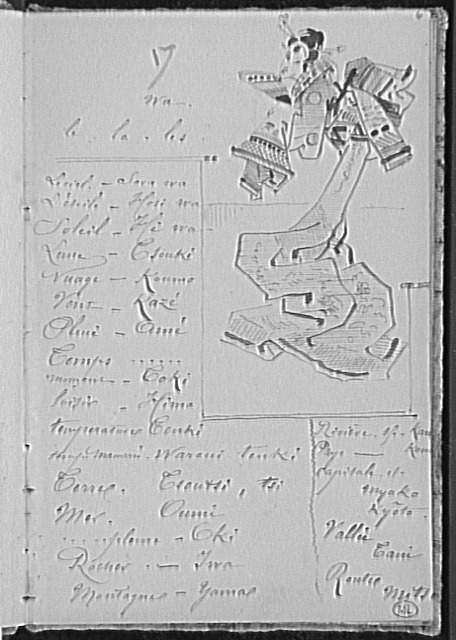 ワ
wa.
le. la. les
Ciel. - Sora wa
Etoile - Hosi wa
Soleil - Hi wa
Lune - Tsouki
Nuage - Koumo
Vent - Kazé
Pluie - Amé
Temps ......
- Toki
loisir - Hima
température Tenki
temps mauvais. Waroui tenki
Terre. Tsoutsi, tsi
Mer. Oumi
pleine - Oki
Rocher - Iwa
Montagne - Yama
Rivière
Pays - Kouni
capitale
miyako
Kyôto.
Vallée
Tani
Route
Mitsi